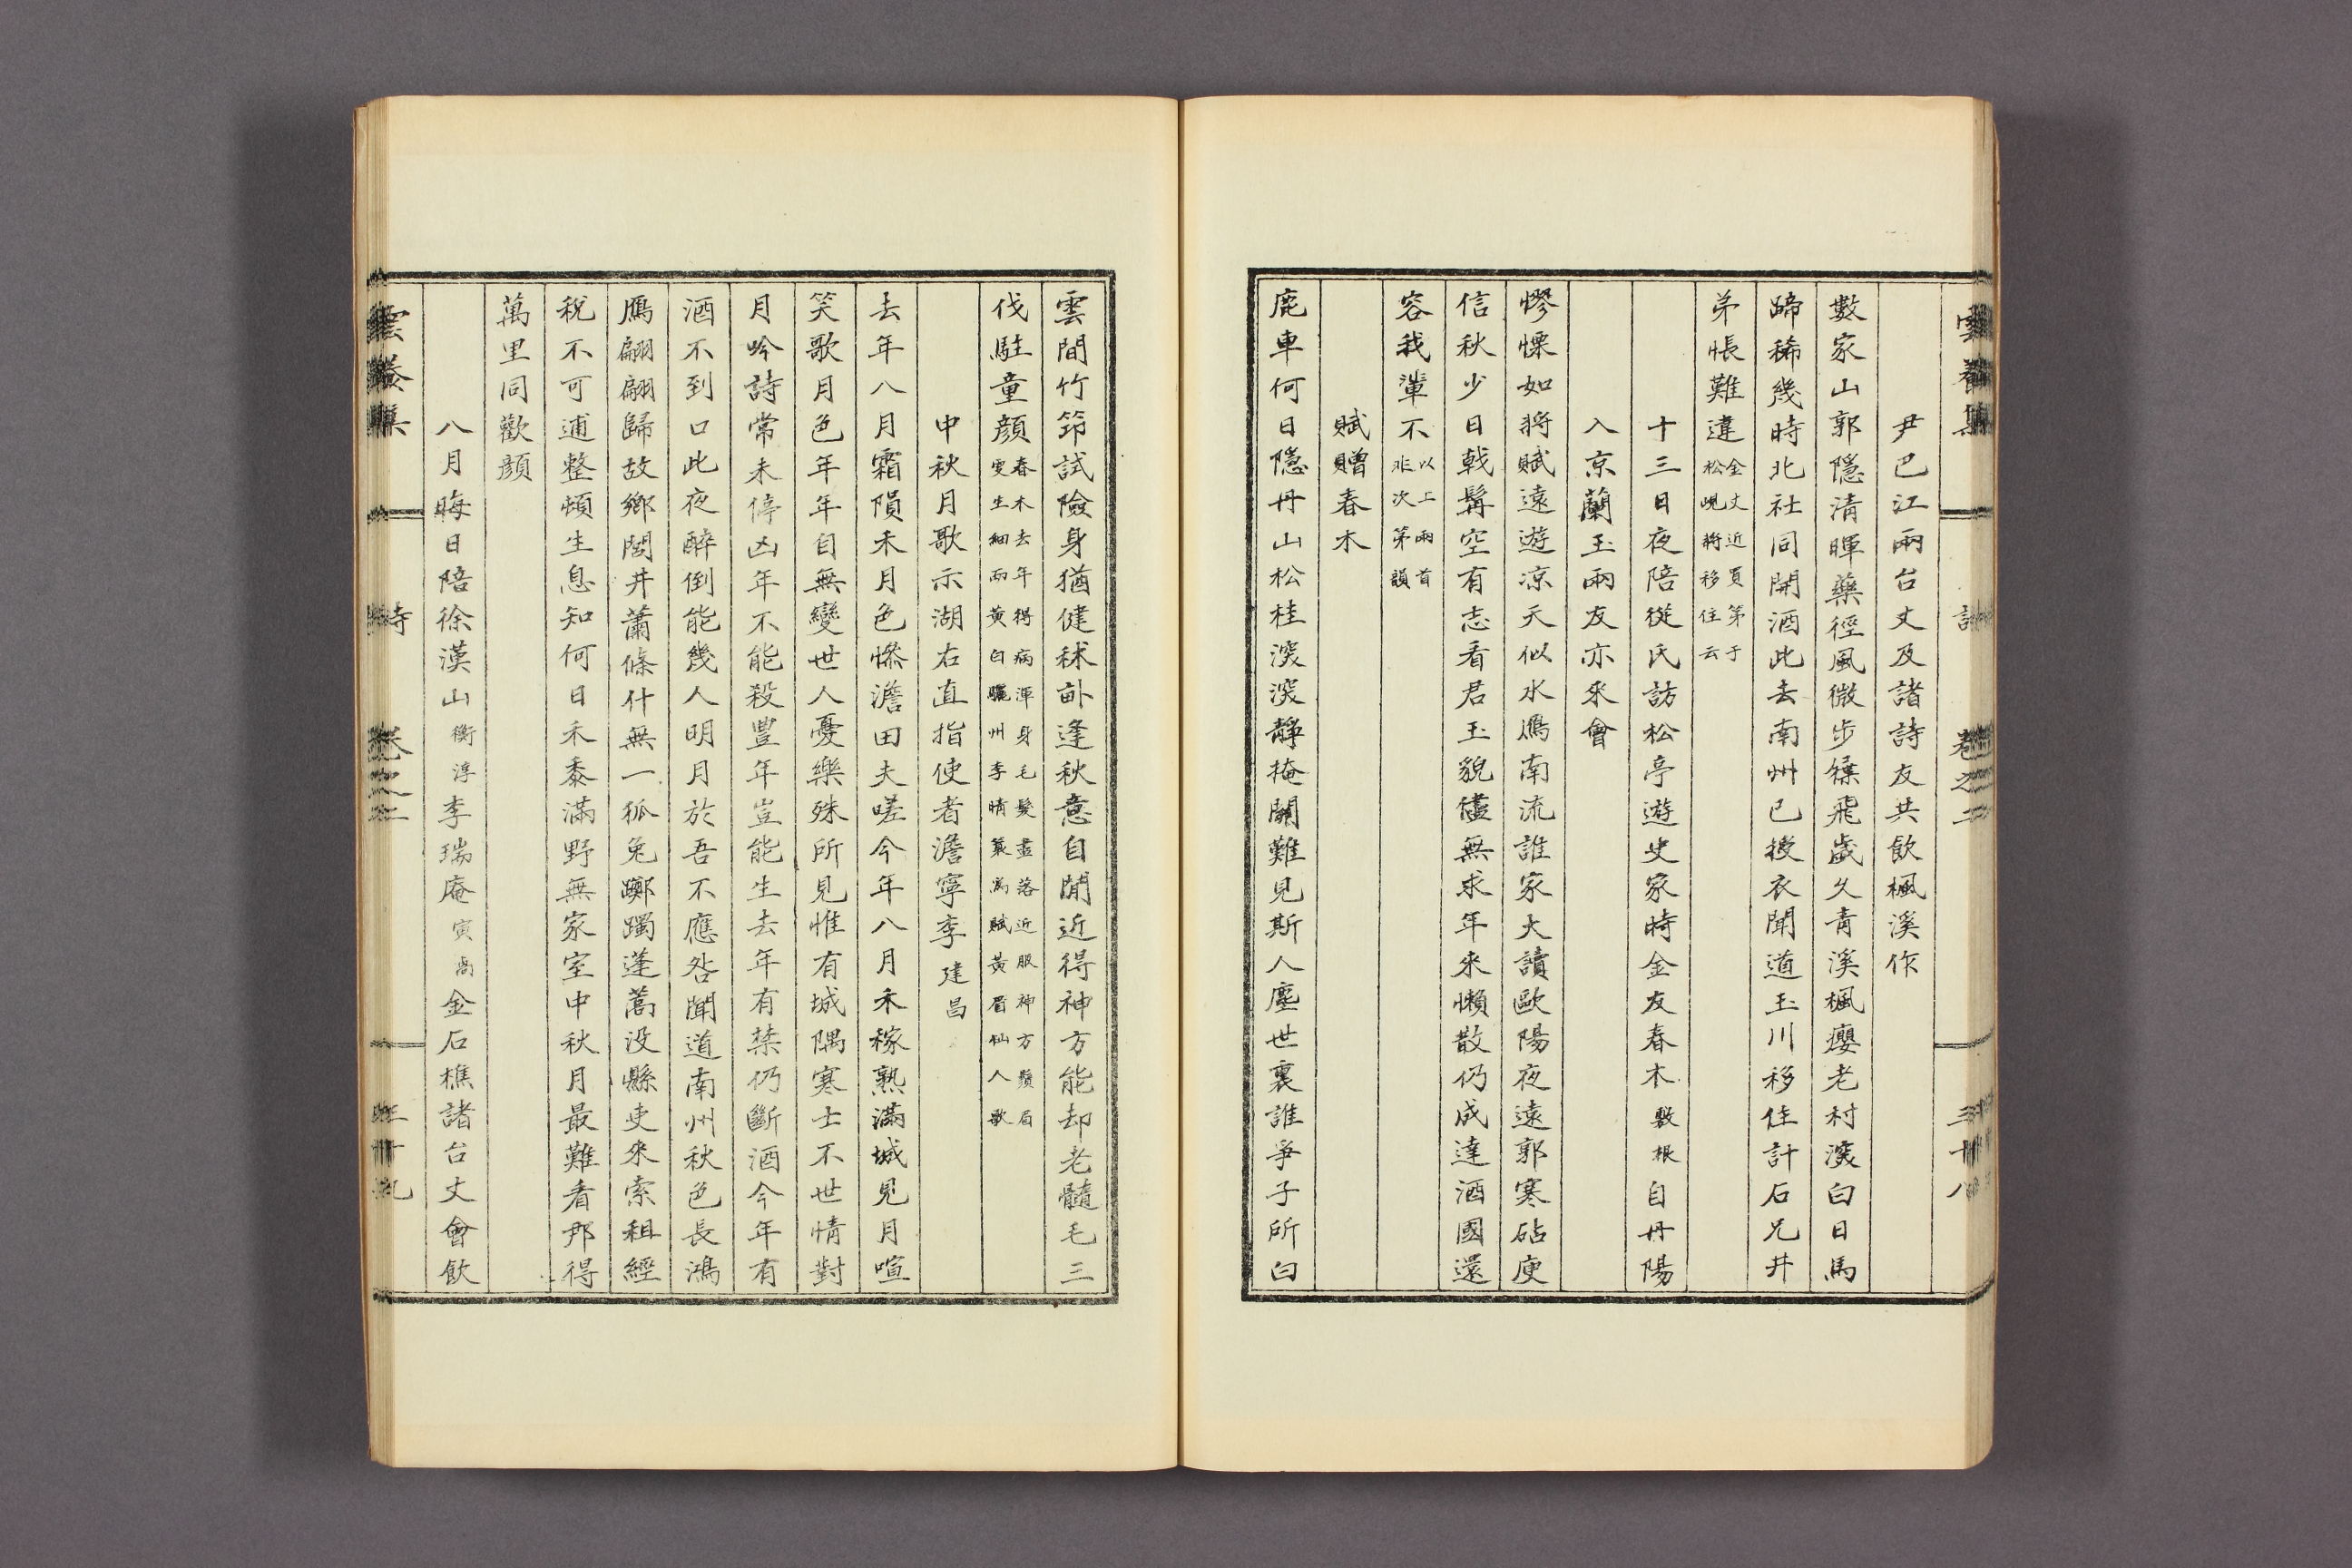 尹巴江兩台丈及諸詩友共飲楓溪作
數家山郭隱淸暉藥徑風微步屧飛歲久靑溪楓癭老村深白日馬
蹄稀幾時北社同開酒此去南州已授衣聞道玉川移住計石兄井
弟悵難違金丈近買第于松峴將移住云
十三日夜陪從氏訪松亭遊史家時金友春木敷根自丹陽
入京蘭玉兩友亦來會
憀慄如將賦遠遊凉天似水鴈南流誰家大讀歐陽夜遠郭寒砧庾
信秋少日戟髯空有志看君玉貌儘無求年來懶散仍成達酒國還
容我輩不以上兩首非次第韻
賦贈春木
鹿車何日隱丹山松桂深深靜掩關難見斯人塵世裏誰爭子所白
雲間竹笻試險身猶健秫畝逢秋意自閒近得神方能却老髓毛三
伐駐童顔春木去年得病渾身毛髮盡落近服神方鬚眉更生細而黃白驪州李晴蓑爲賦黃眉仙人歌
中秋月歌示湖右直指使者澹寧李建昌
去年八月霜隕禾月色慘澹田夫嗟今年八月禾稼熟滿城見月喧
笑歌月色年年自無變世人憂樂殊所見惟有城隅寒士不世情對
月吟詩常未停凶年不能殺豊年豈能生去年有禁仍斷酒今年有
酒不到口此夜醉倒能幾人明月於吾不應咎聞道南州秋色長鴻
鴈翩翩歸故鄕閭井蕭條什無一狐兔躑躅蓬蒿没縣吏來索租經
稅不可逋整頓生息知何日禾黍滿野無家室中秋月最難看那得
萬里同歡顔
八月晦日陪徐漢山衡淳李瑞庵寅卨金石樵諸台丈會飮